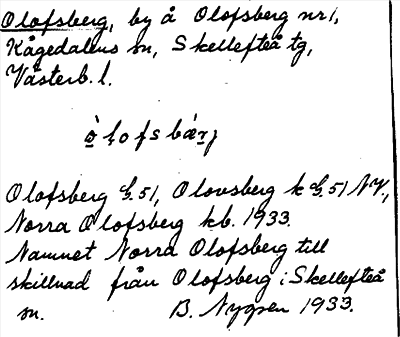 Olofsberg, by å Olofsberg nr 1,
Kågedalens sn, Skellefteå tg,
Västerb. l.
Olofsberg 51, Olovsberg k 51 NV.,
Norra Olofsberg kb. 1933.
Namnet Norra Olofsberg till
skillnad från Olofsberg i Skellefteå
sn. B. Nygren 1933.